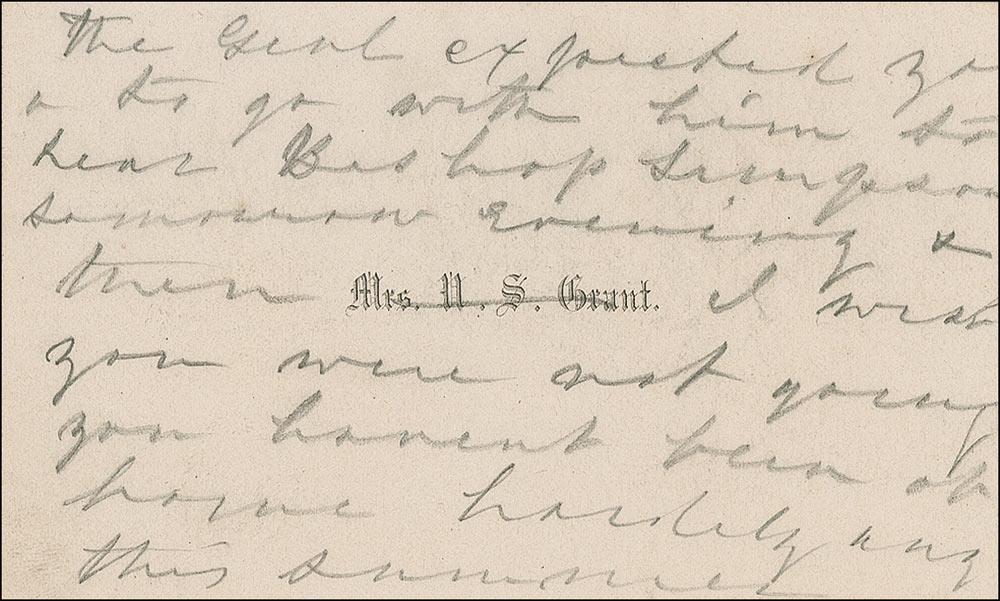 The Genl expected yo
u to go with him to
hear Bishop Simpson
tomorrow evening &
then Mrs. U. S. Grant. I wish
you were not going
you havent been at
home hardely any
this summer